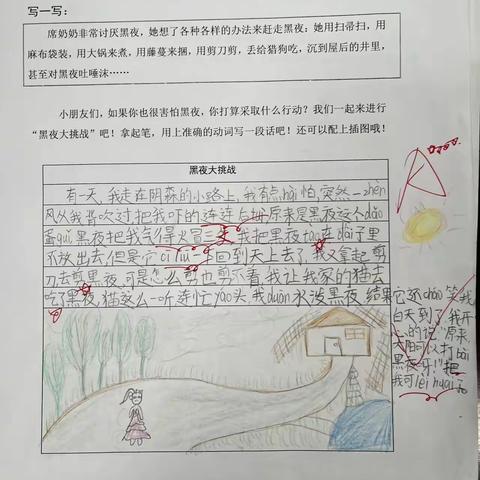 写一写：
席奶奶非常讨厌黑夜，她想了各种各样的办法来赶走黑夜：她用扫帚扫，用
麻布袋装，用大锅来煮，用藤蔓来捆，用剪刀剪，丢给猎狗吃，沉到屋后的井里，
甚至对黑夜吐唾沫……
小朋友们，如果你也很害怕黑夜，你打算采取什么行动？我们一起来进行
“黑夜大挑战”吧！拿起笔，用上准确的动词写一段话吧！还可以配上插图哦！
黑夜大挑战
有一天，我走在阴森的小路上，我有点hài怕，突然一zhèn
风从我背吹过把我吓的连连后 原来是黑夜这个dǎo
蛋guǐ黑夜把我气得火冒三丈我把黑夜 在dài子里
不放出去但是它cì liū一声回到天上去了我又拿起剪
刀去剪黑夜，可是怎么剪也剪不着我让我家的猫去
吃了黑夜，猫这么一听连忙yáo头，我duān水泼黑夜 结果它还cháo笑我
白天到了我开
心的说“原来
太阳可以打bài
黑夜呀！”把
我可lèi huài了